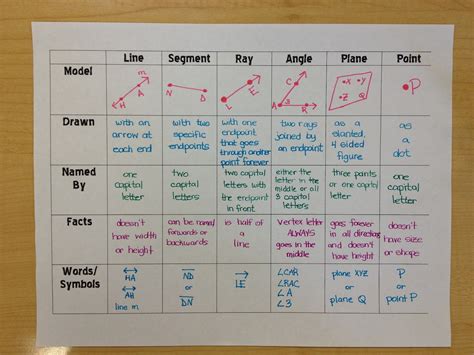 Line Segment Ray Angle Plane Point
Model
m
H A
N D
L E
C
A 3 R
X Y
Z Q
P
Drawn
with an
arrow at
each end
with two
specific
endpoints
with one
endpoint
that goes
through another
point forever
two rays
joined by
an endpoint
as a
slanted,
4 sided
figure
as
a
dot
Named
By
one
capital
letter
two
capital
letters
two capital
letters with
the endpoint
in front
either the
letter in the
middle or all
3 capital
letters
three points
or one capital
letter
one
capital
letter
Facts
doesn't
have width
or height
can be named
forwards or
backwards
is half of
a line
vertex letter
ALWAYS
goes in the
middle
goes forever
in all directions
and doesn't
have height
doesn't
have size
or shape
Words/
Symbols
HA
AH
line m
ND
or
DN
LE
∠CAR
∠RAC
∠A
∠3
plane XYZ
or
plane Q
P
or
point P